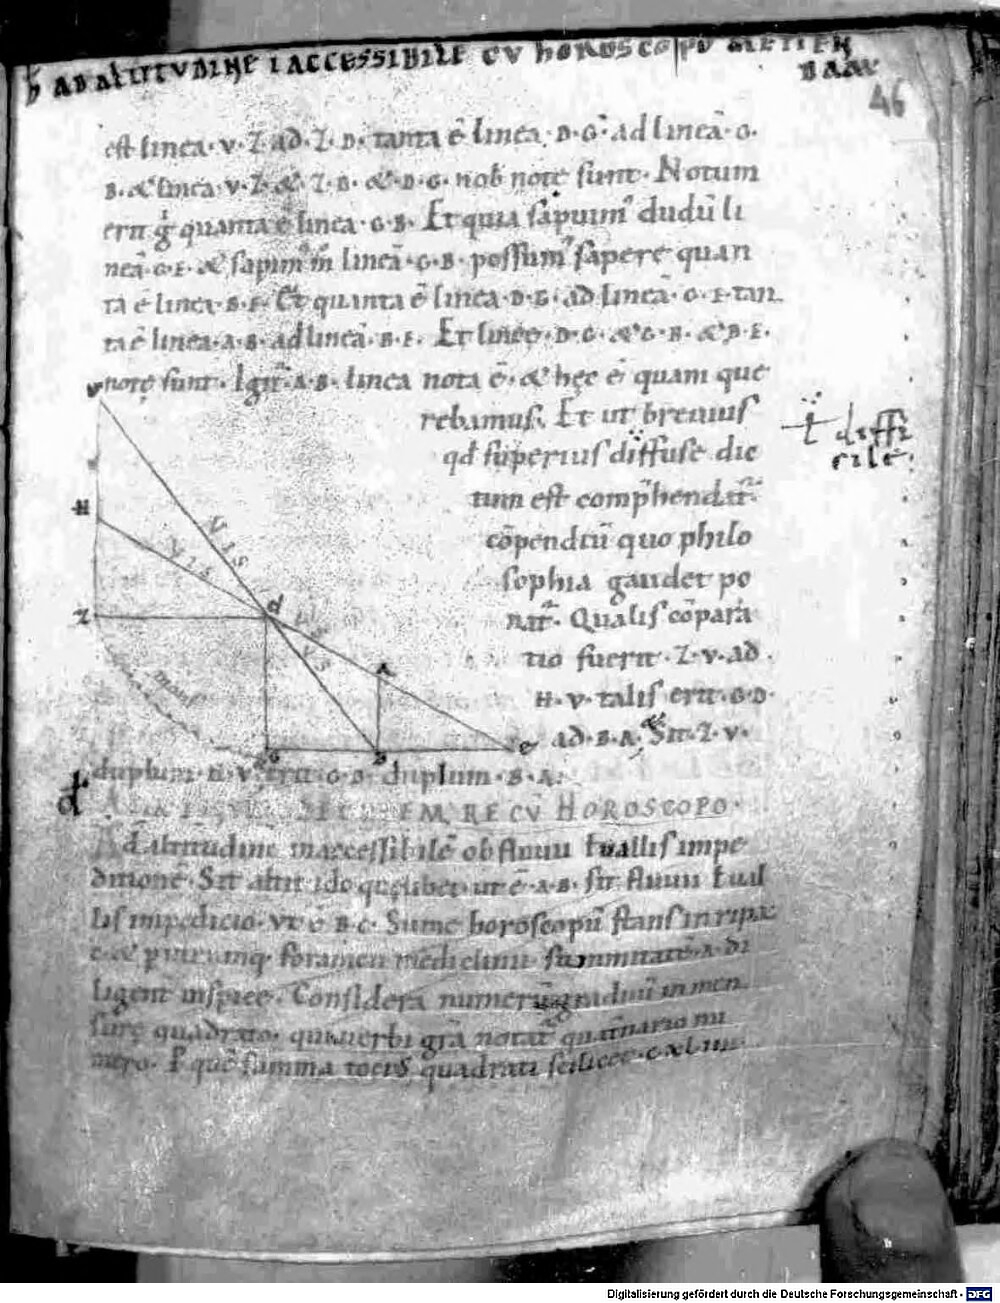 AD ALTITVDINE IACCESSIBILE CV HOROSCOPO METIEN
DAM
46
est linea · v · Z · ad · Z · D · tanta ē linea · D · G · ad lineā · G ·
B · & linea · v · Z · & · Z · D · & · D · G · nob note sunt · Notum
erit gͥ quanta ē linea · G · B · Et quia sapuim᾿ dudū li
neā · G · E · & sapim᾿ lineā · G · B · possum᾿ sapere quan
ta ē linea · B · E · Et quanta ē linea · D · G · ad lineā · G · E · tan
ta ē linea · A · B · ad lineā · B · E · Et linee · D · G · & G · B · & B · E ·
note sunt · Igit᾿ · A · B · linea nota ē · & hęc ē quam que
rebamus. Et ut breuius
qd superius diffuse dic
tum est comphendat᾿
cōpendiū quo philo
sophia gaudet po
nat᾿. Qualis cōpara
tio fuerit · Z · v · ad ·
H · v · talis erit · G · D ·
ad · B · A · Sit · Z · v ·
duplum · H · v · erit · G · D · duplum · B · A ·
ł diffi
cile
v
H
Z
d
A
e
G
B
VIS
VIS
VIS
HOROSCOPO ·
Ad altitudinē inaccessibilē ob fluuii ł uallis impe
dimonē · Sit altitudo quelibet ut ē · A · B · sit fluuii ł ual
lis impedicio · vt ē B · C · Sume horoscopū stans in ripa
c · & p utrumq foramen mediclinii summitatē · A · di
ligent inspice · Considera numerū graduū in men
sure quadrato · qui uerbi grā notat᾿ quat᾿nario nu
mero · P quē summa toci᾿ quadrati scilicet · cxliiii ·